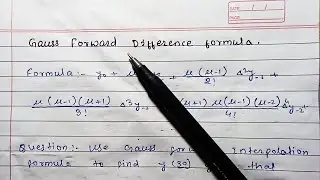 Gauss Forward Difference formula.
Formula:- y₀ + μ μ(μ-1)/2! Δ²y₋₁ +
μ(μ-1)(μ+1)/3! Δ³y₋₁ (μ+1)μ(μ-1)(μ-2)/4! Δ⁴y₋₂+
Question:- Use Gauss Interpolation
formula to find y(30) that